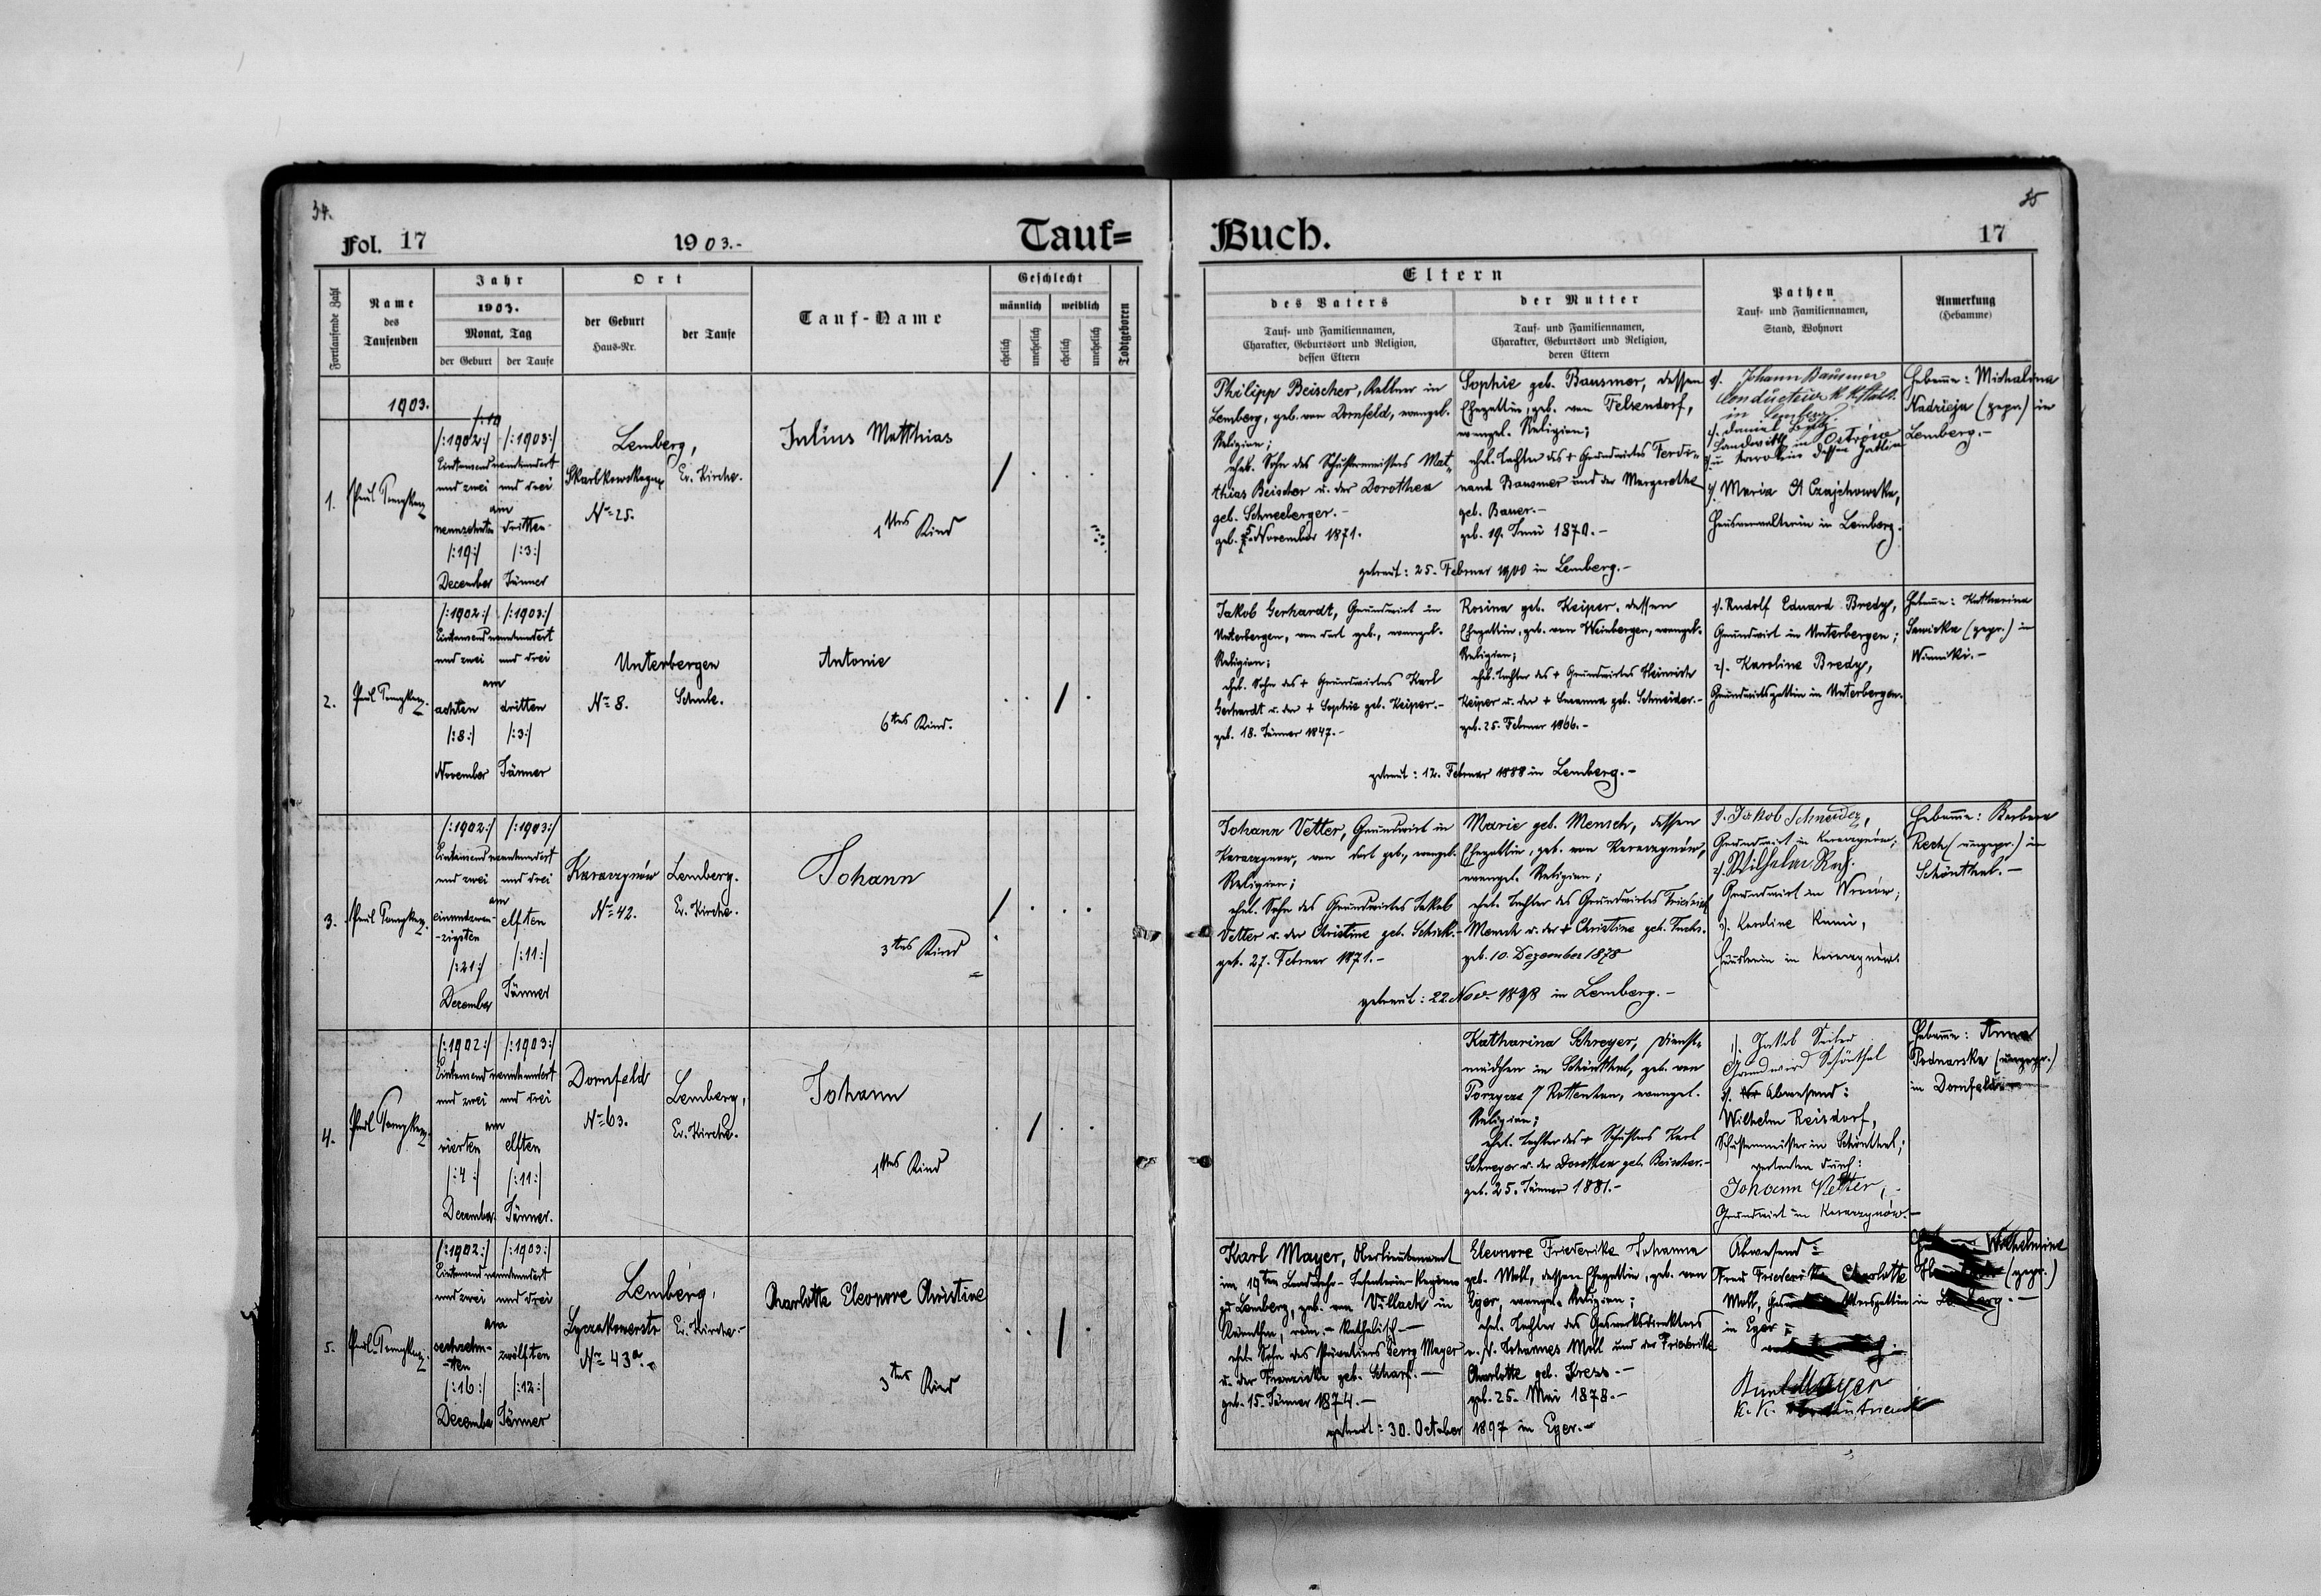 34.
Fol. 17
1903.-
Tauf=
Fortlaufende Zahl
Name
des
Taufenden
Jahr
1903.
Monat, Tag
der Geburt
der Taufe
Ort
der Geburt
Haus-Nr.
der Taufe
Tauf-Name
Geschlecht
männlich
weiblich
ehelich
unehelich
ehelich
unehelich
Todtgeboren
1903.
1.
/:1902:/ /:1903:/
Eintausend neunhundert
und zwei und drei
am
neunzehnten dritten
/:19:/ /:3:/
December Jänner
Lemberg,
Ev. Kirche.
No 25.
Julius Matthias
1tes Kind
2.
/:1902:/ /:1903:/
Eintausend neunhundert
und zwei und drei
am
achten dritten
/:8:/ /:3:/
November Jänner
Unterbergen
No 8. Schule.
Antonie
6tes Kind.
3.
/:1902:/ /:1903:/
Eintausend neunhundert
und zwei und drei
am
einundzwan-
-zigsten elften
/:21:/ /:11:/
Dezember Jänner
Karaczynów Lemberg.
No 42. Ev. Kirche.
Johann
3tes Kind
4.
/:1902:/ /:1903:/
Eintausend neunhundert
und zwei und drei
am
vierten elften
/:4:/ /:11:/
Dezember Jänner.
Dornfeld Lemberg,
No 63. Ev. Kirche.
Johann
1tes Kind
5.
/:1902:/ /:1903:/
Eintausend neunhundert
und zwei und drei
am
sechzehn-
-ten zwölften
/:16:/ /:12:/
December Jänner
Lemberg,
Lyczakowerstr Ev. Kirche.-
No 43a.
Charlotte Eleonore Christine
3tes Kind
35
Buch.
17
Eltern
des Vaters
Tauf- und Familiennamen,
Charakter, Geburtsort und Religion,
dessen Eltern
der Mutter
Tauf- und Familiennamen,
Charakter, Geburtsort und Religion,
deren Eltern
Pathen
Tauf- und Familiennamen,
Stand, Wohnort
Anmerkung
(Hebamme)
Philipp Beischer, Kellner in
Lemberg, geb. von Dornfeld, evangel.
Religion;
ehel. Sohn des Schustermeisters Mat-
thias Beischer u. der Dorothea
geb. Schneeberger.-
geb. 5. November 1871.
Sophie geb. Bausmer, dessen
Ehegattin, geb. von Felsendorf,
evangel. Religion;
ehel. Tochter des + Grundwirtes Ferdi-
nand Bausmer und der Margarethe
geb. Bauer.-
geb. 19. Juni 1870.-
getraut: 25. Februar 1900 in Lemberg.-
1/. Johann Bausmer
in Lemberg.
Hausverwalterin in Lemberg.
Hebamme: Michalina
Nadzieja (gepr.) in
Lemberg.-
Jakob Gerhardt, Grundwirt in
Unterbergen, von dort geb., evangel.
Religion;
ehel. Sohn des + Grundwirtes Karl
Gerhardt u. der + Sophie geb. Keiper.-
geb. 18. Jänner 1847.-
Rosina geb. Keiper, dessen
Ehegattin, geb. von Weinbergen, evangel.
Religion;
ehel. Tochter des + Grundwirtes Heinrich
Keiper u. der + Susanna geb. Schneider.-
geb. 25. Februar 1866.-
getraut: 12. Februar 1888 in Lemberg.-
1/. Rudolf Eduard Bredy,
Grundwirt in Unterbergen;
2/. Karoline Bredy,
Grundwirtsgattin in Unterbergen.
Hebamme: Katharina
Sawicka (gepr.) in
Winniki.-
Johann Vetter, Grundwirt in
Karaczynow, von dort geb., evangel.
Religion;
ehel. Sohn des Grundwirtes Jakob
Vetter u. der Christine geb. Schick.-
geb. 27. Februar 1871.-
Marie geb. Mensch, dessen
Ehegattin, geb. von Karaczynów,
evangel. Religion;
ehel. Tochter des Grundwirtes Friedrich
Mensch u. der + Christine geb. Fuchs.
geb. 10. Dezember 1878
getraut: 22. Nov. 1898 in Lemberg.-
1. Jakob Schneider,
Grundwirt in Karaczynów;
2/. Wilhelm
Grundwirt in
3/. Karoline
in Karaczynów.
Hebamme: Barbara
(ungepr.) in
Schönthal.-
Katharina Schreyer, Dienst-
mädchen in Schönthal, geb. von
evangel.
Religion;
ehel. Tochter des + Schusters Karl
Schreyer u. der Dorothea geb. Beischer.-
geb. 25. Jänner 1881.-
1/. Jakob
Grundwird Schönthal
2/. Abwesend:
Wilhelm Reisdorf,
Schustermeister in Schönthal;
vertreten durch:
Johann Vetter,
Grundwirt in Karaczynów.-
Hebamme: Anna
Bednarska (ungepr.)
in Dornfeld.-
Karl Mayer, Oberlieutenant
im 19ten Landwehr-Infanterie-Regiment
zu Lemberg, geb. von Villach in
Kärnthen, röm.-katholisch.-
ehel. Sohn des Privatiers Georg Mayer
u. der Franziska geb. Scharf.-
geb. 15. Jänner 1874.-
Eleonore Friederike Johanna
geb. Moll, dessen Ehegattin, geb. von
Eger, evangel. Religion;
ehel. Tochter des Gaswerksdirektors
Johannes Moll und der Friederike
Charlotte geb. Kress.-
geb. 25. Mai 1878.-
getraut: 30. October 1897 in Eger.-
Abwesend:
Frau Friederike Charlotte
Moll,
in Eger
Mayer
k. k.
Wilhelmine
(gepr.)
in Lemberg.-